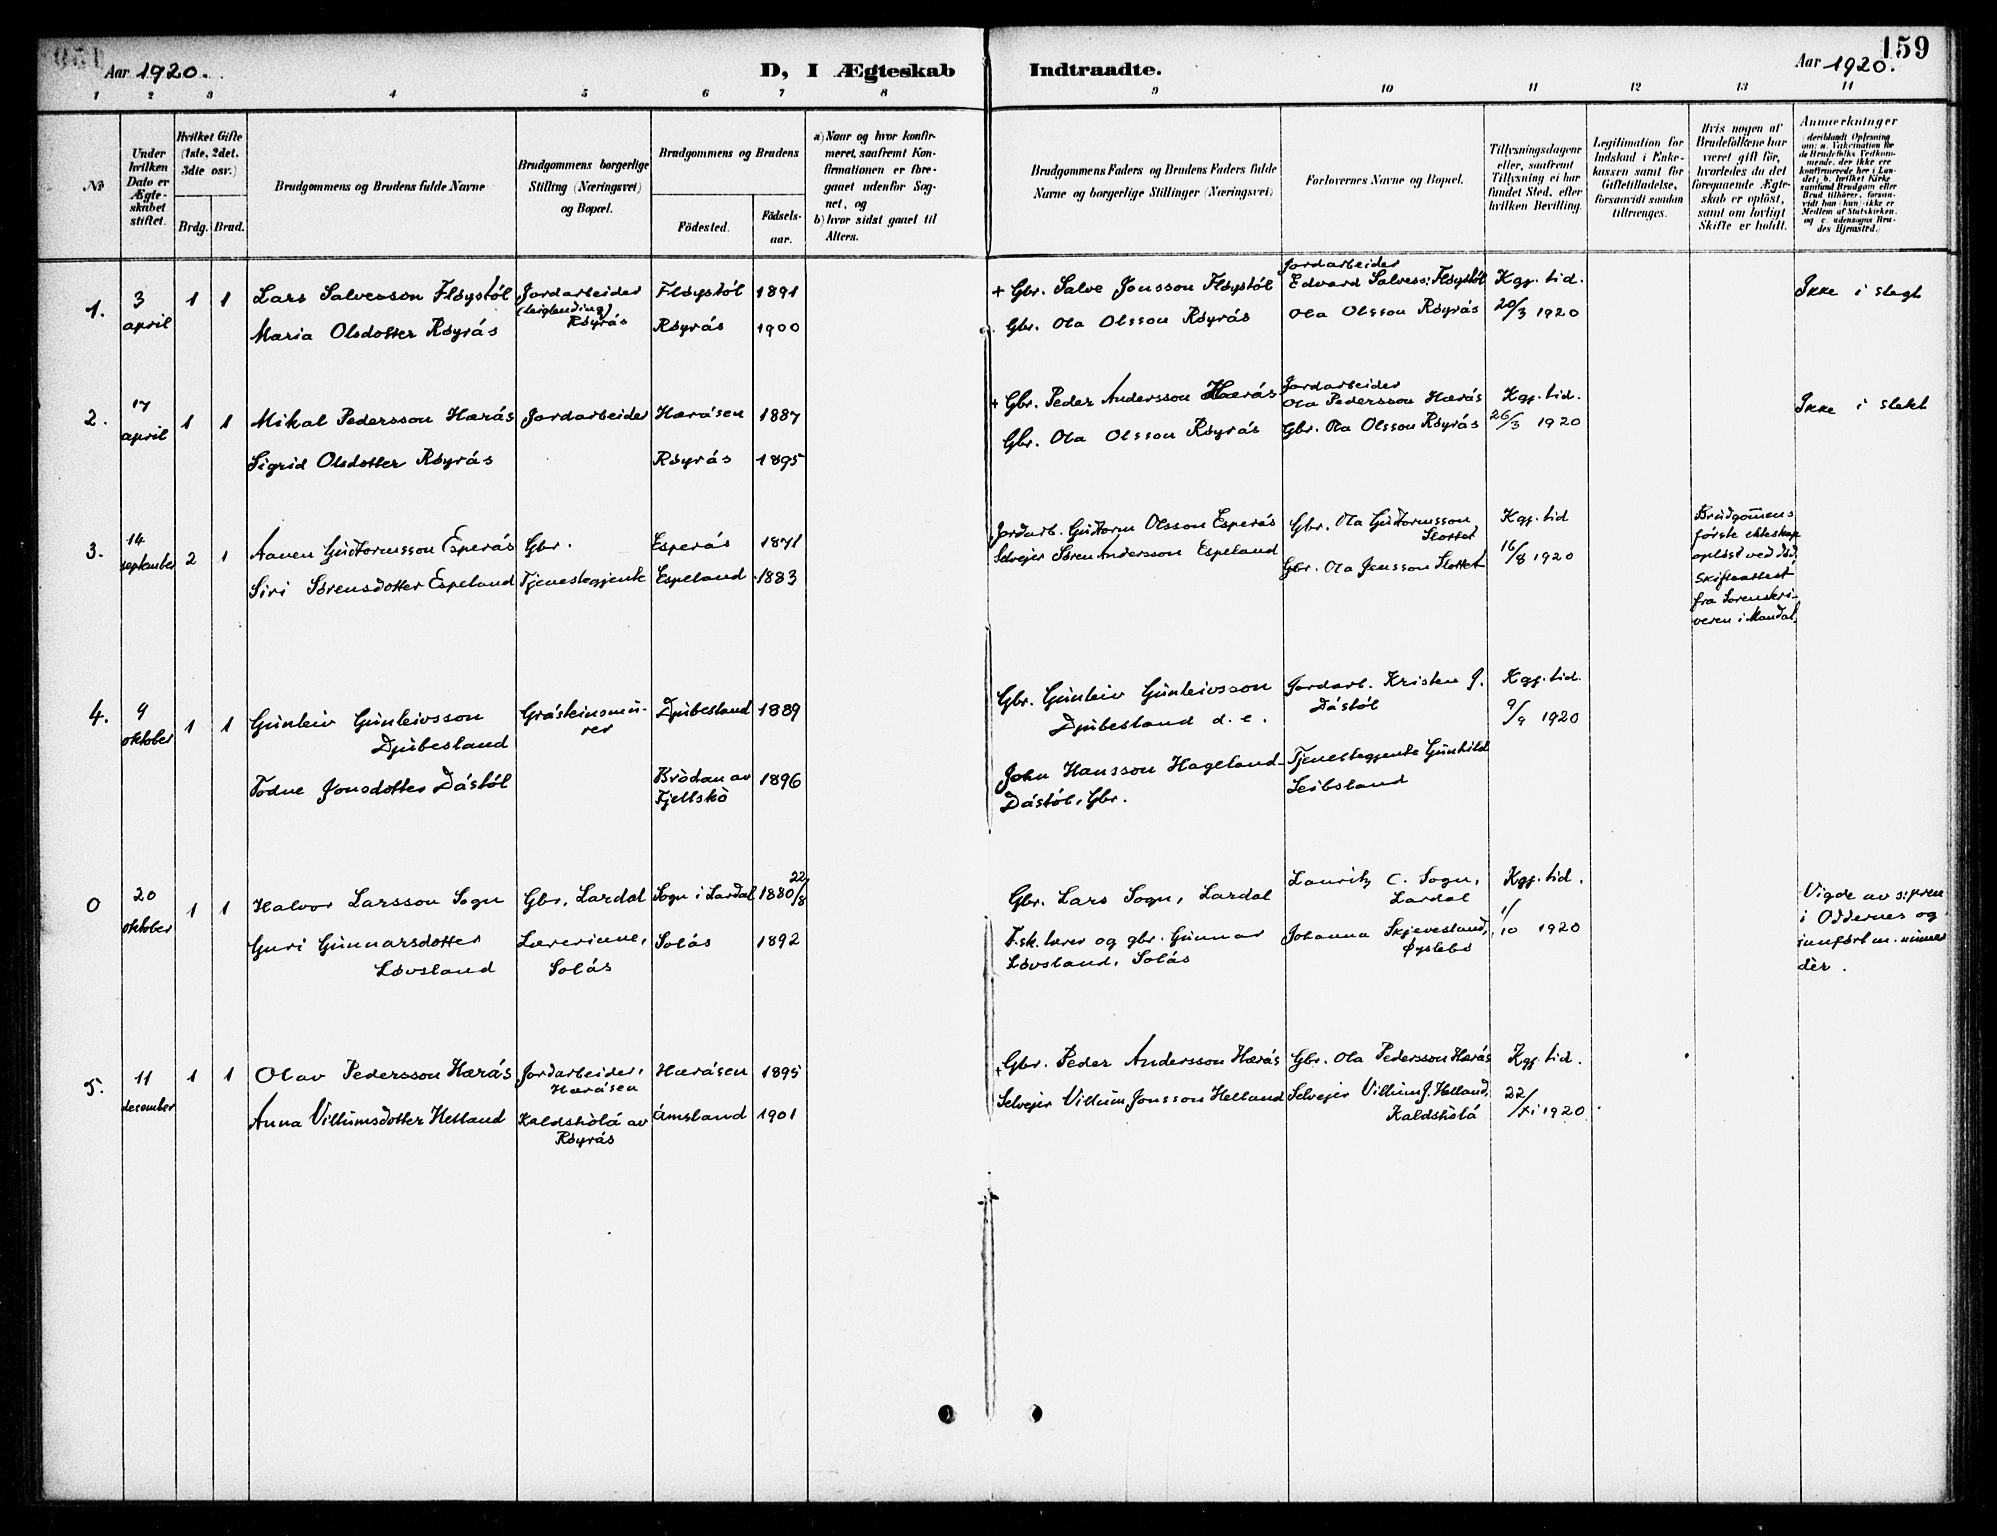 Aar 1920.
D, I Ægteskab
Indtraadte.
Aar 1920.
159
1 2 3 4 5 6 7 8 9 10 11 12 13 14
№
Under hvilken Dato er Ægteskabet stiftet.
Hvilket Gifte (1ste, 2det, 3die osv.)
Brdg.
Brud.
Brudgommens og Brudens fulde Navne
Brudgommens borgerlige Stilling (Næringsvei) og Bopæl.
Brudgommens og Brudens
Födested.
Födsels-aar.
a) Naar og hvor konfirmeret, saafremt Konfirmationen er foregaaet udenfor Sognet, og
b) hvor sidst gaaet til Alters.
Brudgommens Faders og Brudens Faders fulde Navne og borgerlige Stillinger (Næringsvei)
Forlovernes Navne og Bopæl.
Tillysningsdagene eller, saafremt Tillysning ei har fundet Sted, efter hvilken Bevilling
Legitimation for Indskud i Enkekassen samt for Giftetilladelse, forsaavidt saadan tiltrænges.
Hvis nogen af Brudefolkene har været gift för, hvorledes da det foregaaende Ægteskab er oplöst, samt om lovligt Skifte er holdt.
Anmærkninger
1.
3 april
1 1
Lars Salvesson Fløystøl
Jordarbeider
(leiglending)
Røyrås
Fløystøl 1891
+ Gbr. Salve Jonsson Fløystøl
Jordarbeider
Edvard Salvess. Fløystøl
Kgj. tid.
Ikke i slegt
Maria Olsdotter Røyrås
Røyrås 1900
Gbr. Ola Olsson Røyrås
Ola Olsson Røyrås
20/3 1920
2.
17 april
1 1
Mikal Pedersson Hærås
Jordarbeider
Hæråsen 1887
+ Gbr. Peder Andersson Hærås
Jordarbeider
Ola Pedersson Hærås
Kgj. tid.
Ikke i slekt
Sigrid Olsdotter Røyrås
Røyrås 1895
Gbr. Ola Olsson Røyrås
Gbr. Ola Olsson Røyrås
26/3 1920
3.
14 september
2 1
Aanen Guttormsson Esperås
Gbr.
Esperås 1871
Jordarb. Guttorm Olsson Esperås
Gbr. Ola Guttormsson
Slottet
Kgj. tid
Siri Sørensdotter Espeland
Tjenestegjente
Espeland 1883
Selveier Søren Andersson Espeland
Gbr. Ola Jensson Slottet
16/8 1920
Brudgommens
første ekteskap
opløst ved død.
Skifteattest
fra Sorenskri-
veren i Mandal.
4.
9 oktober
1 1
Gunleiv Gunleivsson
Djubesland
Gråsteinsmu-
rer
Djubesland 1889
Gbr. Gunleiv Gunleivsson
Djubesland d. e.
Jordarb. Kristen J.
Dåstøl
Kgj. tid.
9/9 1920
Todne Jonsdotter Dåstøl
Brådan av
Fjellskå
1896
John Hansson Hageland-
Dåstøl, Gbr.
Tjenestegjente Gunhild
Leibsland
0
20 oktober
1 1
Halvor Larsson Sogn
Gbr. Lardal
Sogn i Lardal
1880 22/8
Gbr. Lars Sogn, Lardal
Lauritz C. Sogn,
Lardal
Kgj. tid.
Guri Gunnarsdotter
Løvsland
Lærerinne,
Solås
Solås 1892
F. sk. lærer og gbr. Gunnar
Løvsland, Solås
Johanna Skjevesland,
Øyslebø
1/10 1920
Vigde av s. pren
i Oddernes og
innført m. numer
dèr.
5.
11 december
1 1
Olav Pedersson Hærås
Jordarbeider,
Hæråsen
Hæråsen 1895
+ Gbr. Peder Andersson Hærås
Gbr. Ola Pedersson Hærås
Kgj. tid.
Anna Villumsdotter Helland
Kaldshòlå av
Røyrås
Åmsland 1901
Selvejer Villum Jonsson Helland
Selvejer Villum J. Helland,
Kaldshòlå
22/xi 1920.